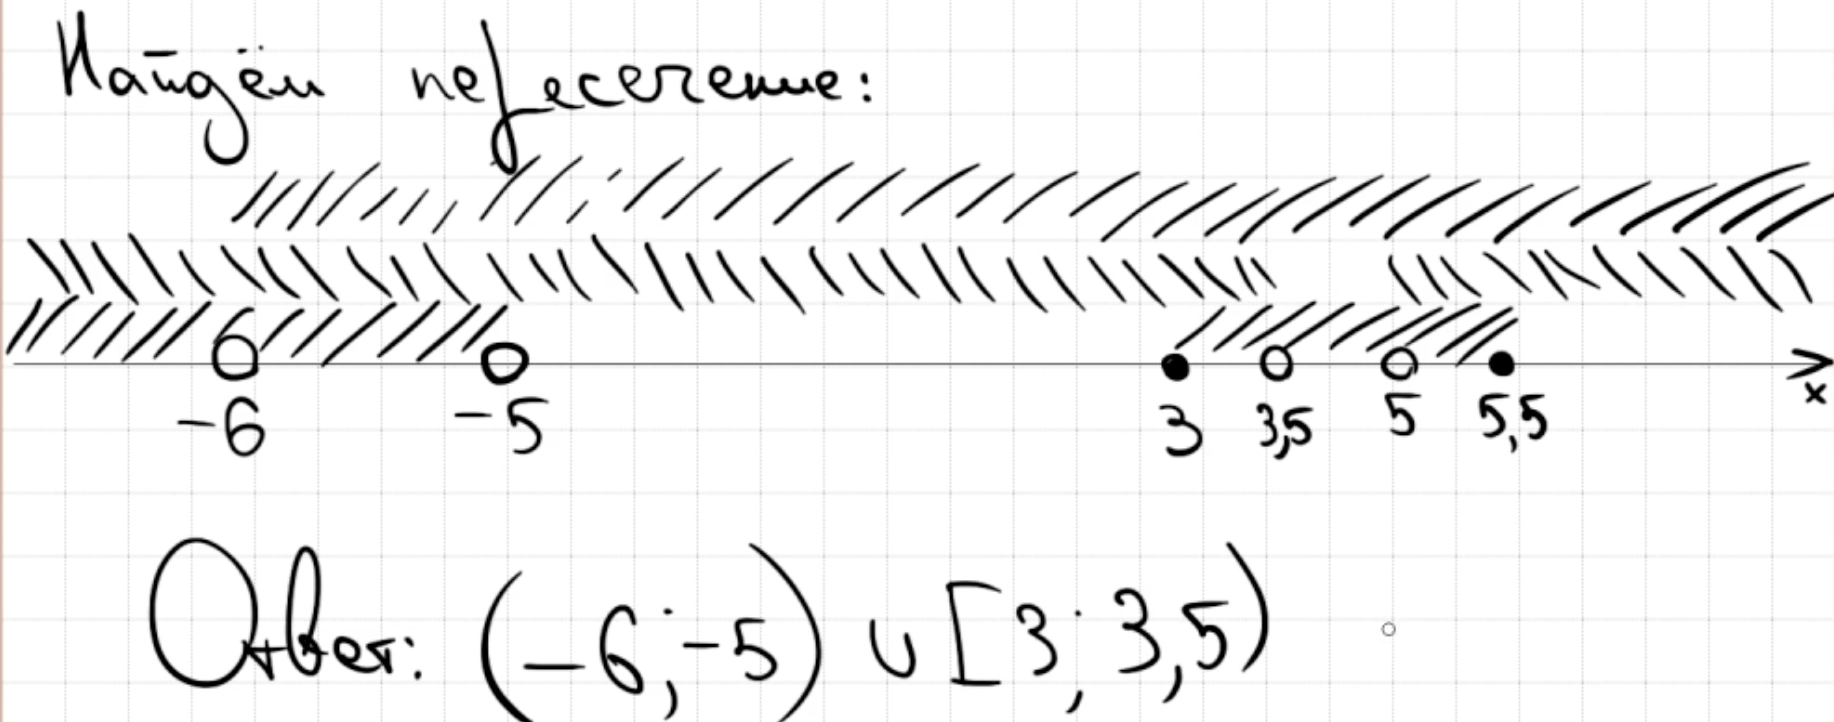 Найдём пересечение:
-6 -5 3 3,5 5 5,5 x
Ответ: (-6; -5) ∪ [3; 3,5)